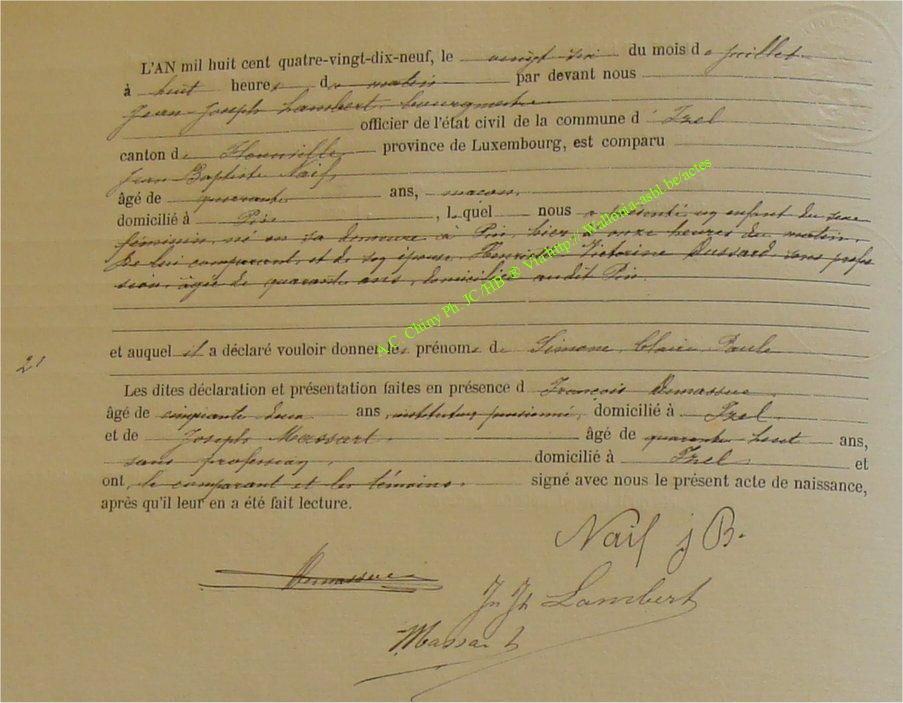 L'AN mil huit cent quatre-vingt-dix-neuf, le vingt six du mois de juillet
à huit heures du matin par devant nous
Jean-Joseph Lambert, bourgmestre
officier de l'état civil de la commune d' Izel
canton de Florenville province de Luxembourg, est comparu
Jean Baptiste Naif,
âgé de quarante ans, maçon,
domicilié à Pin, Lequel nous a présenté un enfant du sexe
féminin, né en sa demeure à Pin, hier, à onze heures du matin,
de lui comparant, et de son épouse, Victorine Dussard, sans profes
sion, âgée de quarante ans, domiciliée audit Pin.
et auquel il a déclaré vouloir donner les prénoms de Simone, Claire, Paule
21
Les dites déclaration et présentation faites en présence d François Demasseure
âgé de cinquante deux ans, instituteur pensionné, domicilié à Izel
et de Joseph Massart, âgé de quarante-huit ans,
sans profession, domicilié à Izel et
ont, le comparant et les témoins, signé avec nous le présent acte de naissance,
après qu'il leur en a été fait lecture.
Naif j B.
Jn Jh Lambert
Massart
A.C. Chiny Ph. JC /HB @ Via http:// Wallonia-asbl.be/actes